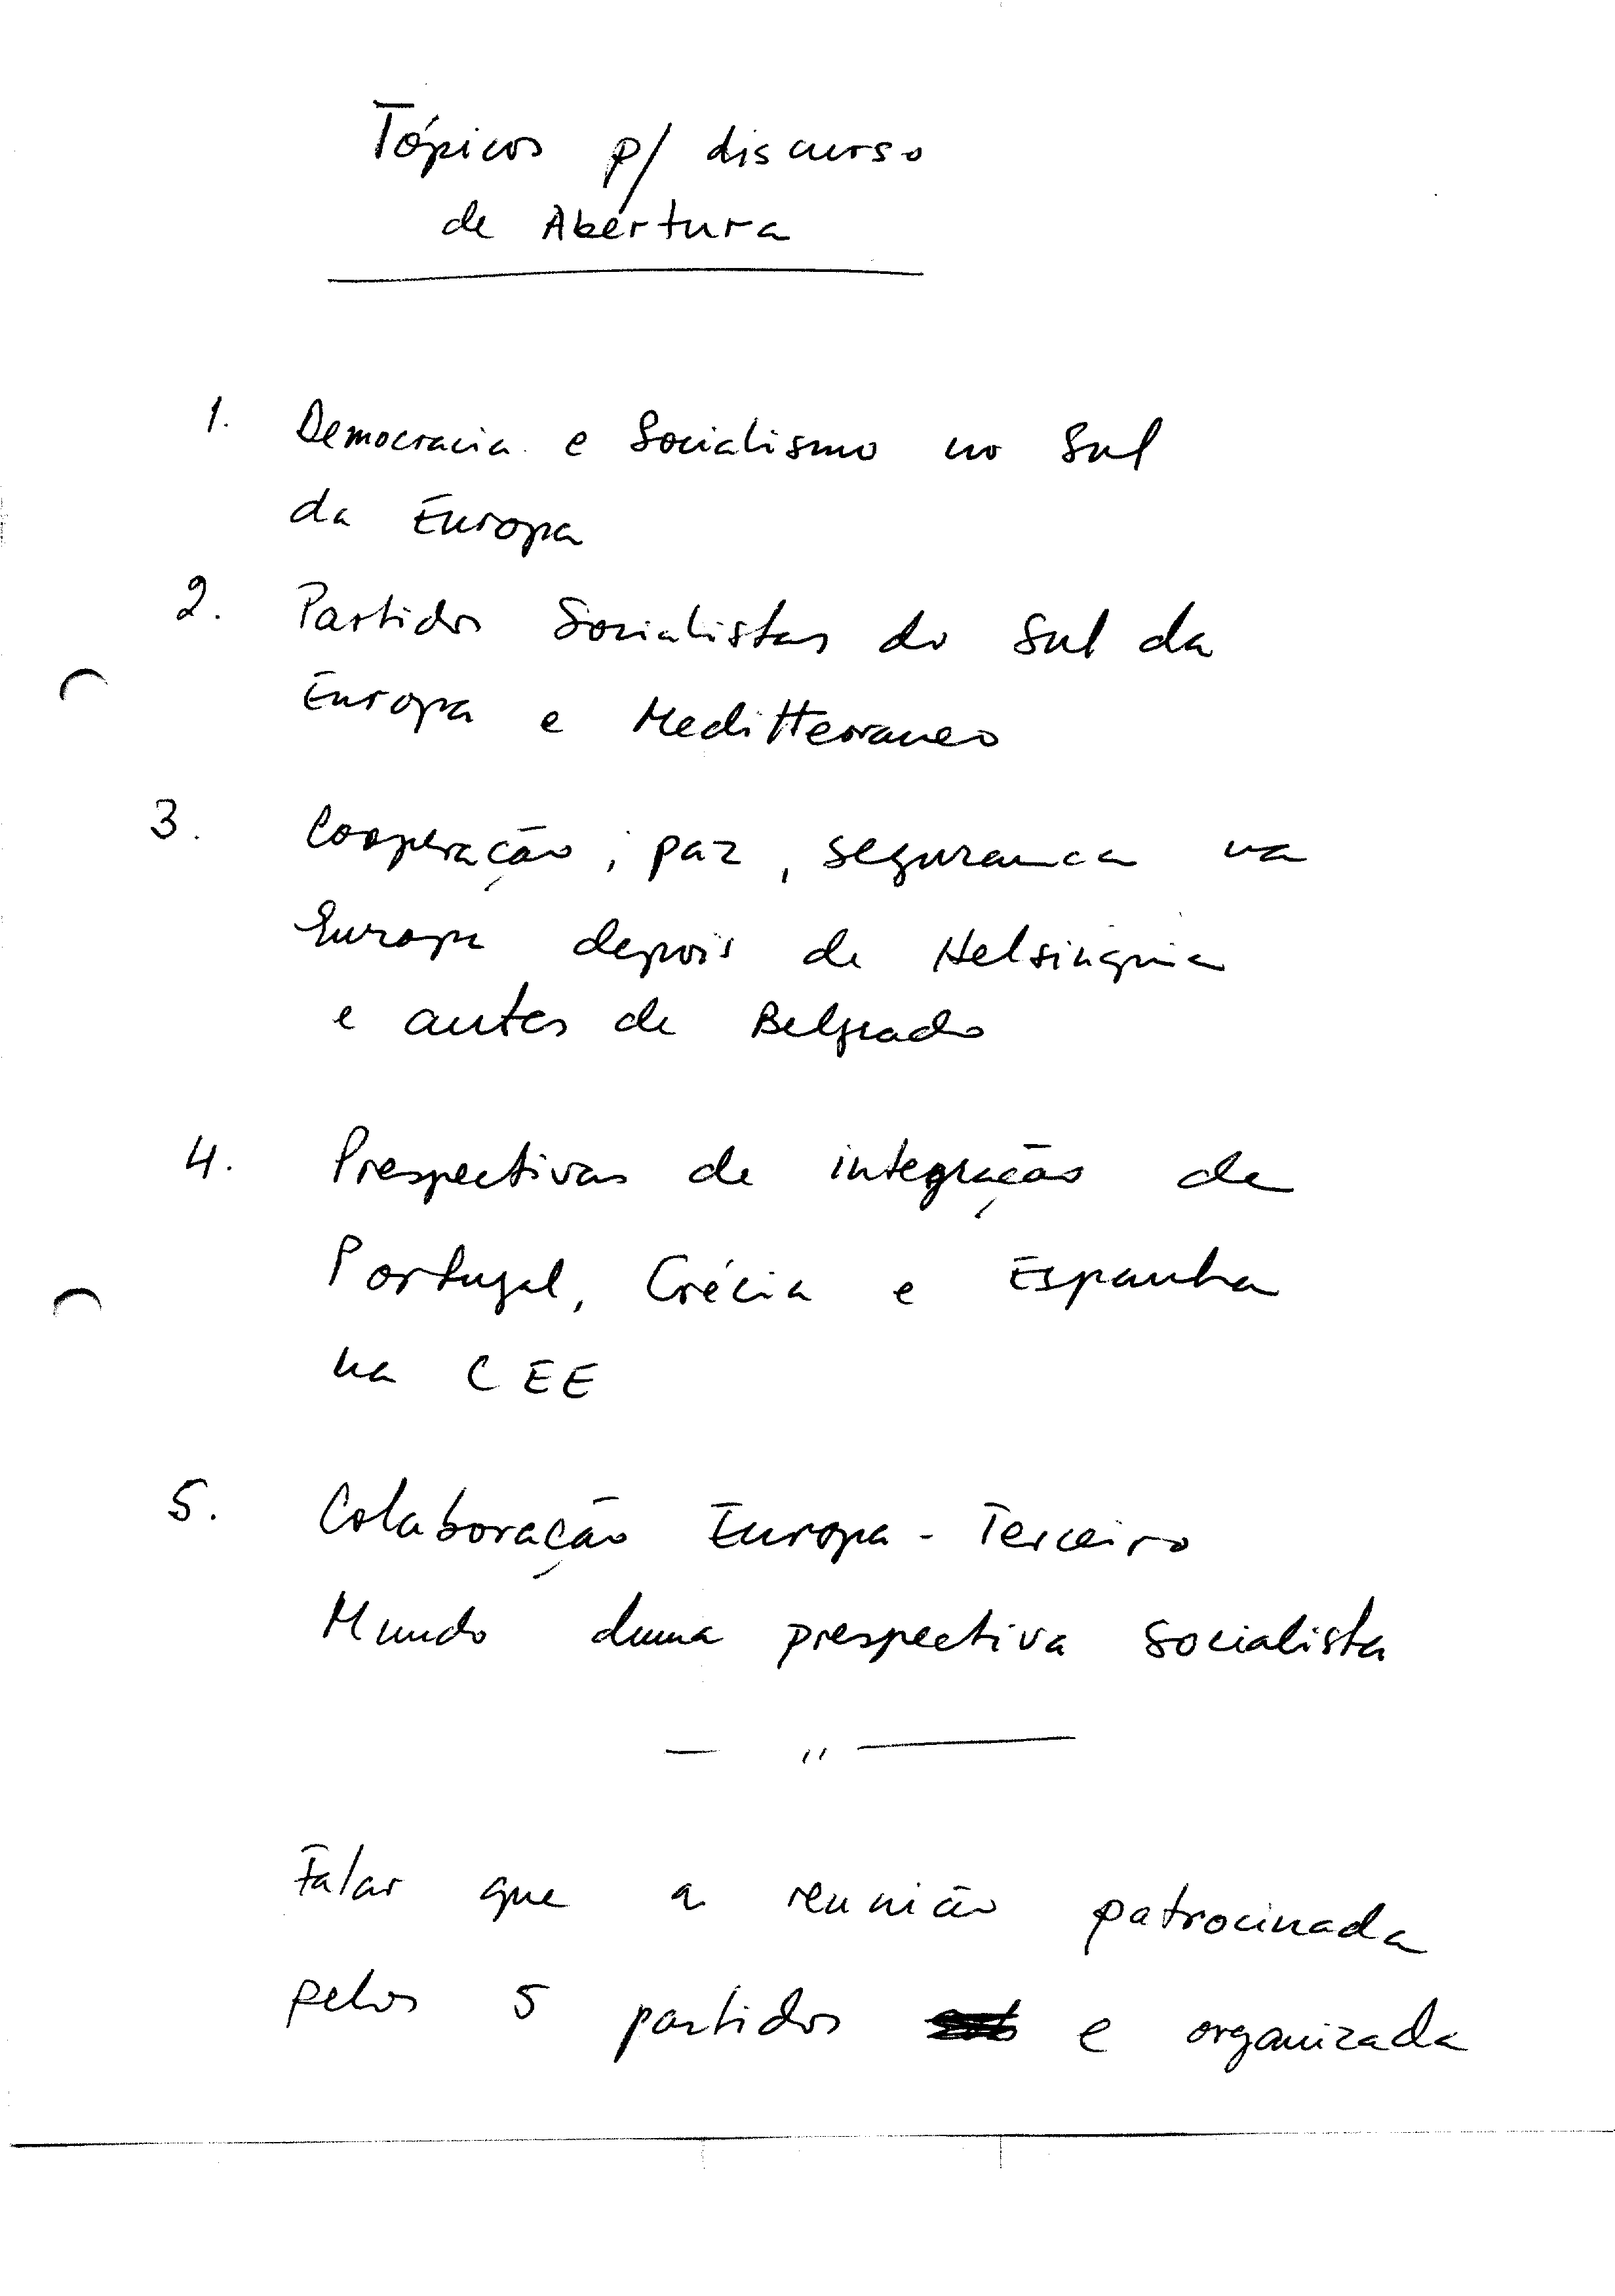 Tópicos p/ discurso
de Abertura
1. Democracia e Socialismo no Sul
da Europa
2. Partidos Socialistas do Sul da
Europa e Meditterraneo
3. Cooperação, paz, seguranca na
Europa depois de Helsinquia
e antes de Belgrado
4. Prespectivas de integração de
Portugal, Grécia e Espanha
na CEE
5. Colaboração Europa - Terceiro
Mundo duma prespectiva socialista
— " —
Falar que a reunião patrocinada
pelos 5 partidos e organizada